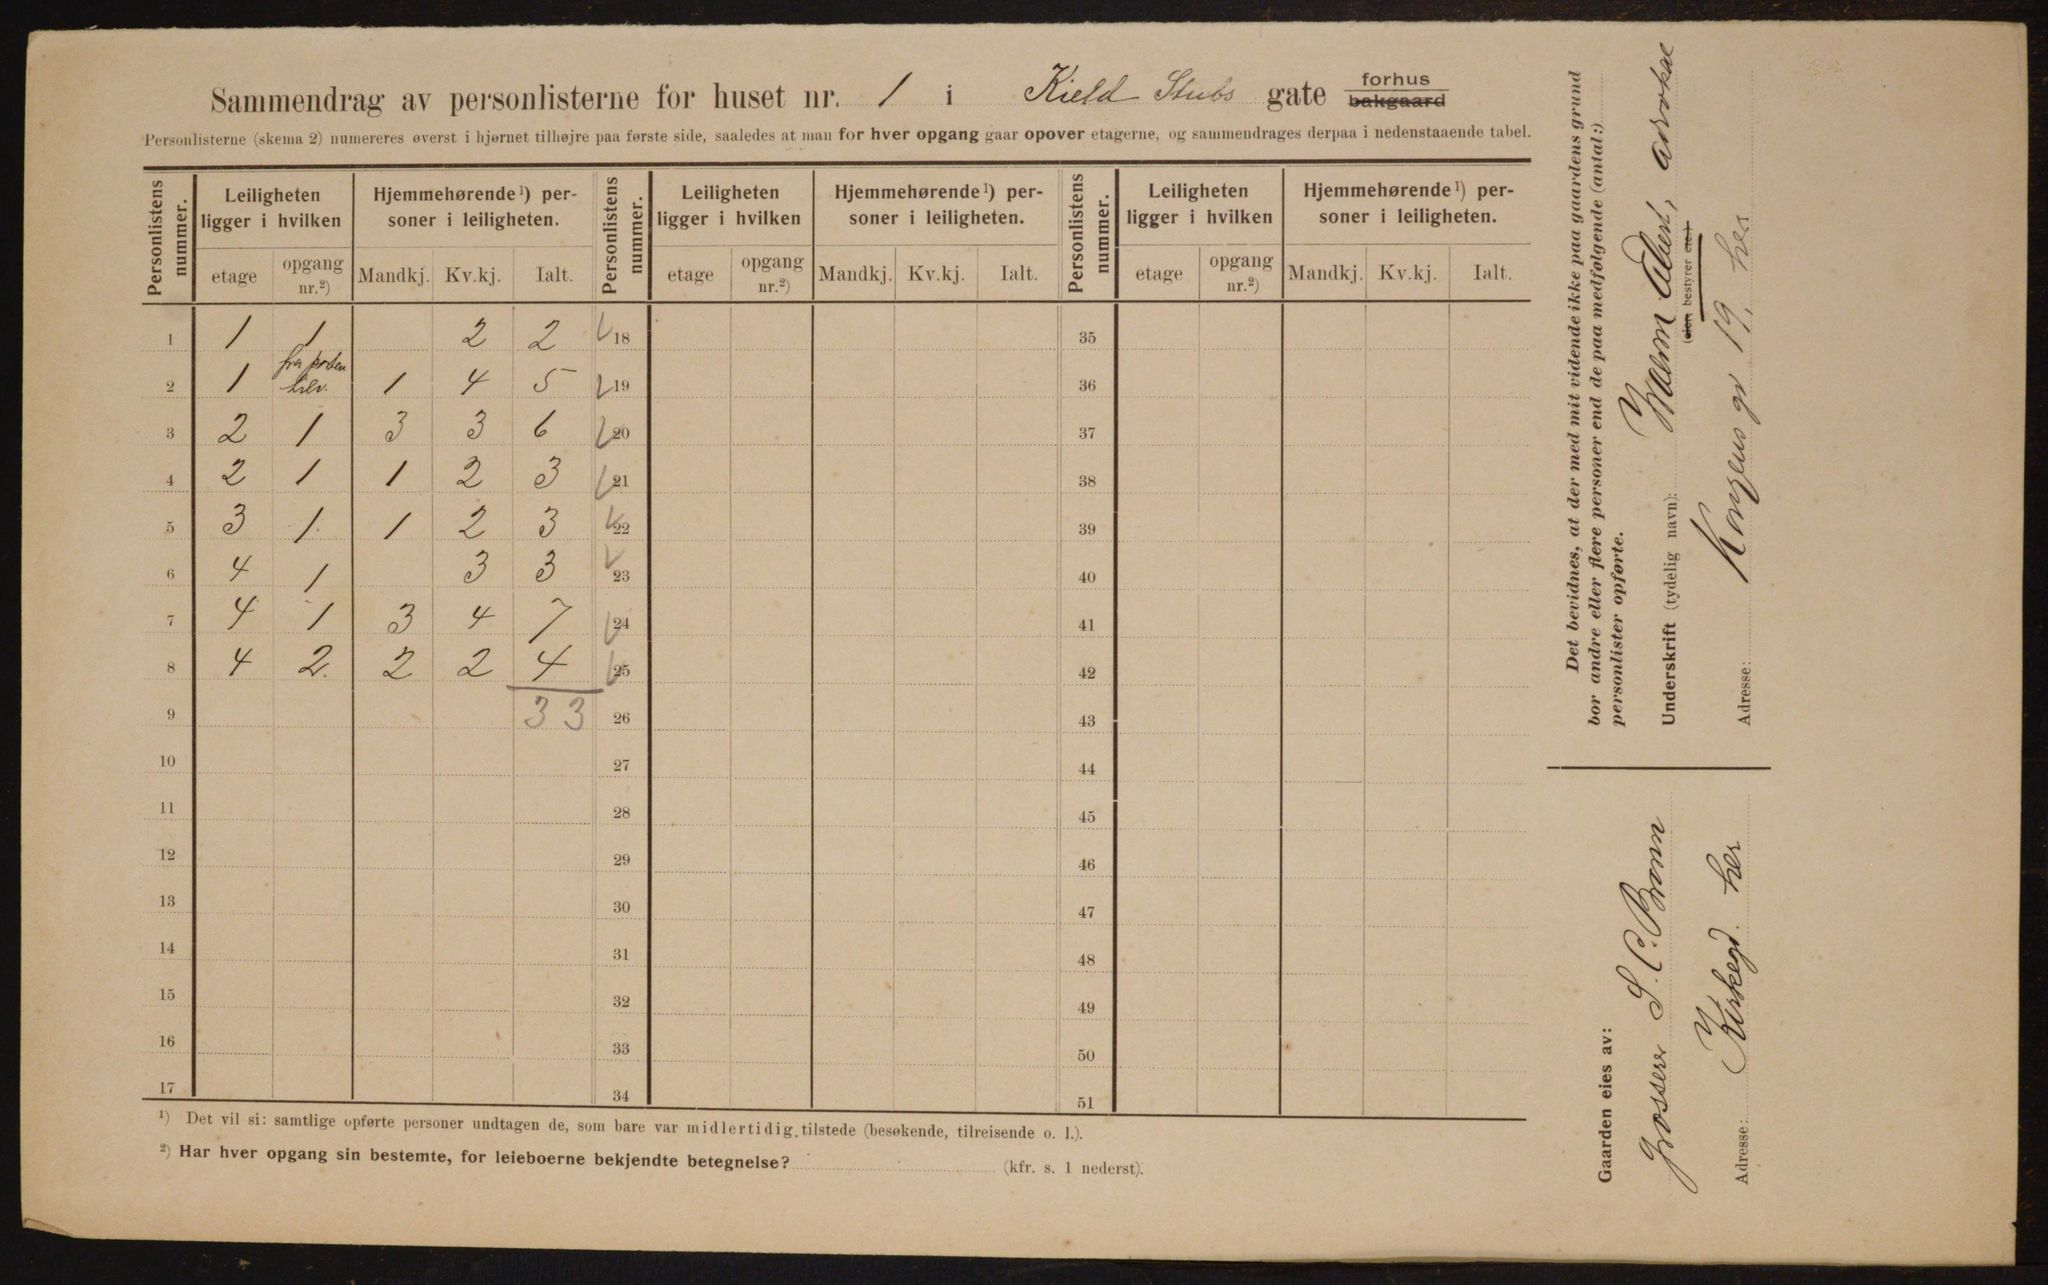 Sammendrag av personlisterne for huset nr. 1 i Kield Stubs gate forhus bakgaard
Personlisterne (skema 2) numereres øverst i hjørnet tilhøjre paa første side, saaledes at man for hver opgang gaar opover etagerne, og sammendrages derpaa i nedenstaaende tabel.
Personlistens nummer. Leiligheten ligger i hvilken Hjemmehørende¹) personer i leiligheten. Personlistens nummer. Leiligheten ligger i hvilken Hjemmehørende¹) personer i leiligheten. Personlistens nummer. Leiligheten ligger i hvilken Hjemmehørende¹) personer i leiligheten.
etage opgang nr.²) Mandkj. Kv.kj. Ialt. etage opgang nr.²) Mandkj. Kv.kj. Ialt. etage opgang nr.²) Mandkj. Kv.kj. Ialt.
1 1 1 2 2 18 35
2 1 fra porten 1 4 5 19 36
3 2 1 3 3 6 20 37
4 2 1 1 2 3 21 38
5 3 1. 1 2 3 22 39
6 4 1 3 3 23 40
7 4 1 3 4 7 24 41
8 4 2. 2 2 4 25 42
9 33 26 43
10 27 44
11 28 45
12 29 46
13 30 47
14 31 48
15 32 49
16 33 50
17 34 51
¹) Det vil si: samtlige opførte personer undtagen de, som bare var midlertidig tilstede (besøkende, tilreisende o. l.).
²) Har hver opgang sin bestemte, for leieboerne bekjendte betegnelse? (kfr. s. 1 nederst).
Det bevidnes, at der med mit vidende ikke paa gaardens grund
bor andre eller flere personer end de paa medfølgende (antal:)
personlister opførte.
Underskrift (tydelig navn): advokat
(eier, bestyrer etc.)
Adresse: Kongens gt 19, her
Gaarden eies av:
Grosserer S. C. Brunn
Adresse: Kirkegd. her